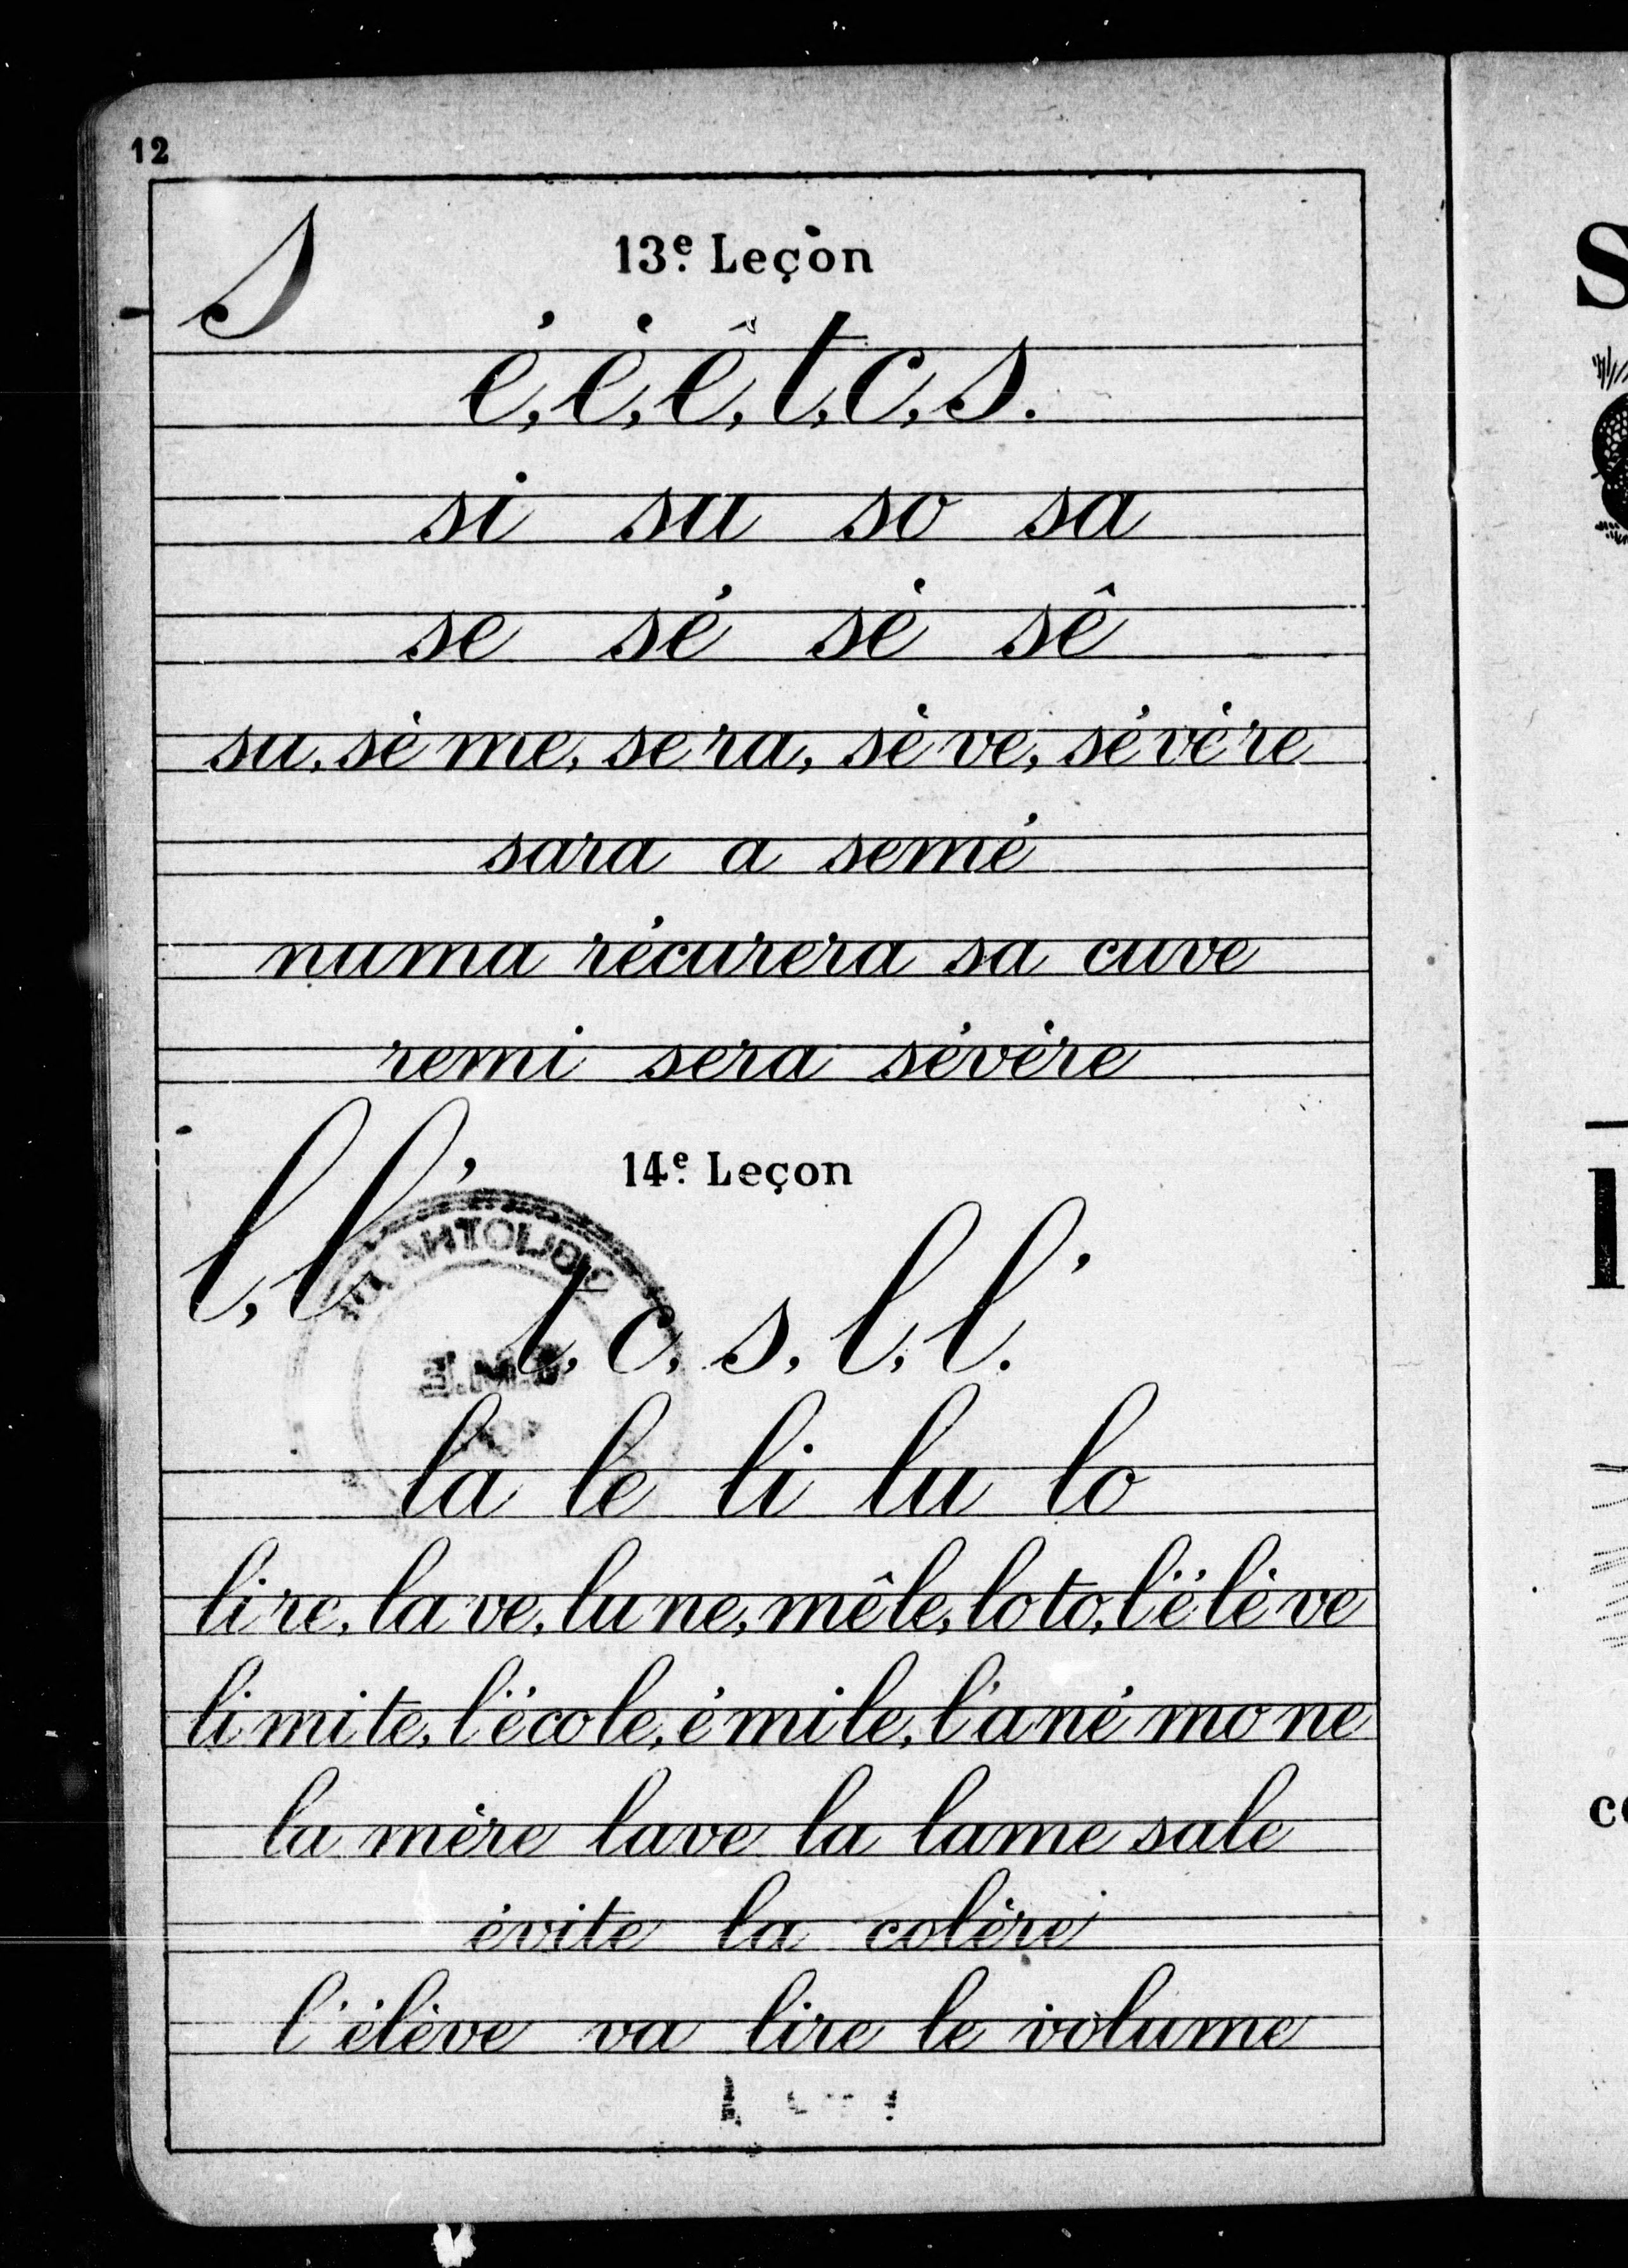 12
s
13e. Leçon
é, è, ê, t, c, s.
si su so sa
se sé sè sê
su, sè me, se ra, sè ve, sé vè re
sara a semé
numa récurera sa cuve
remi sera sévère
l, l'
14e. Leçon
t, c, s, l, l'.
la le li lu lo
li re, la ve, lu ne, mê le, lo to, l'é lè ve
li mi te, l'é co le, é mi le, l'a né mo ne
la mère lave la lame sale
évite la colère
l'élève va lire le volume